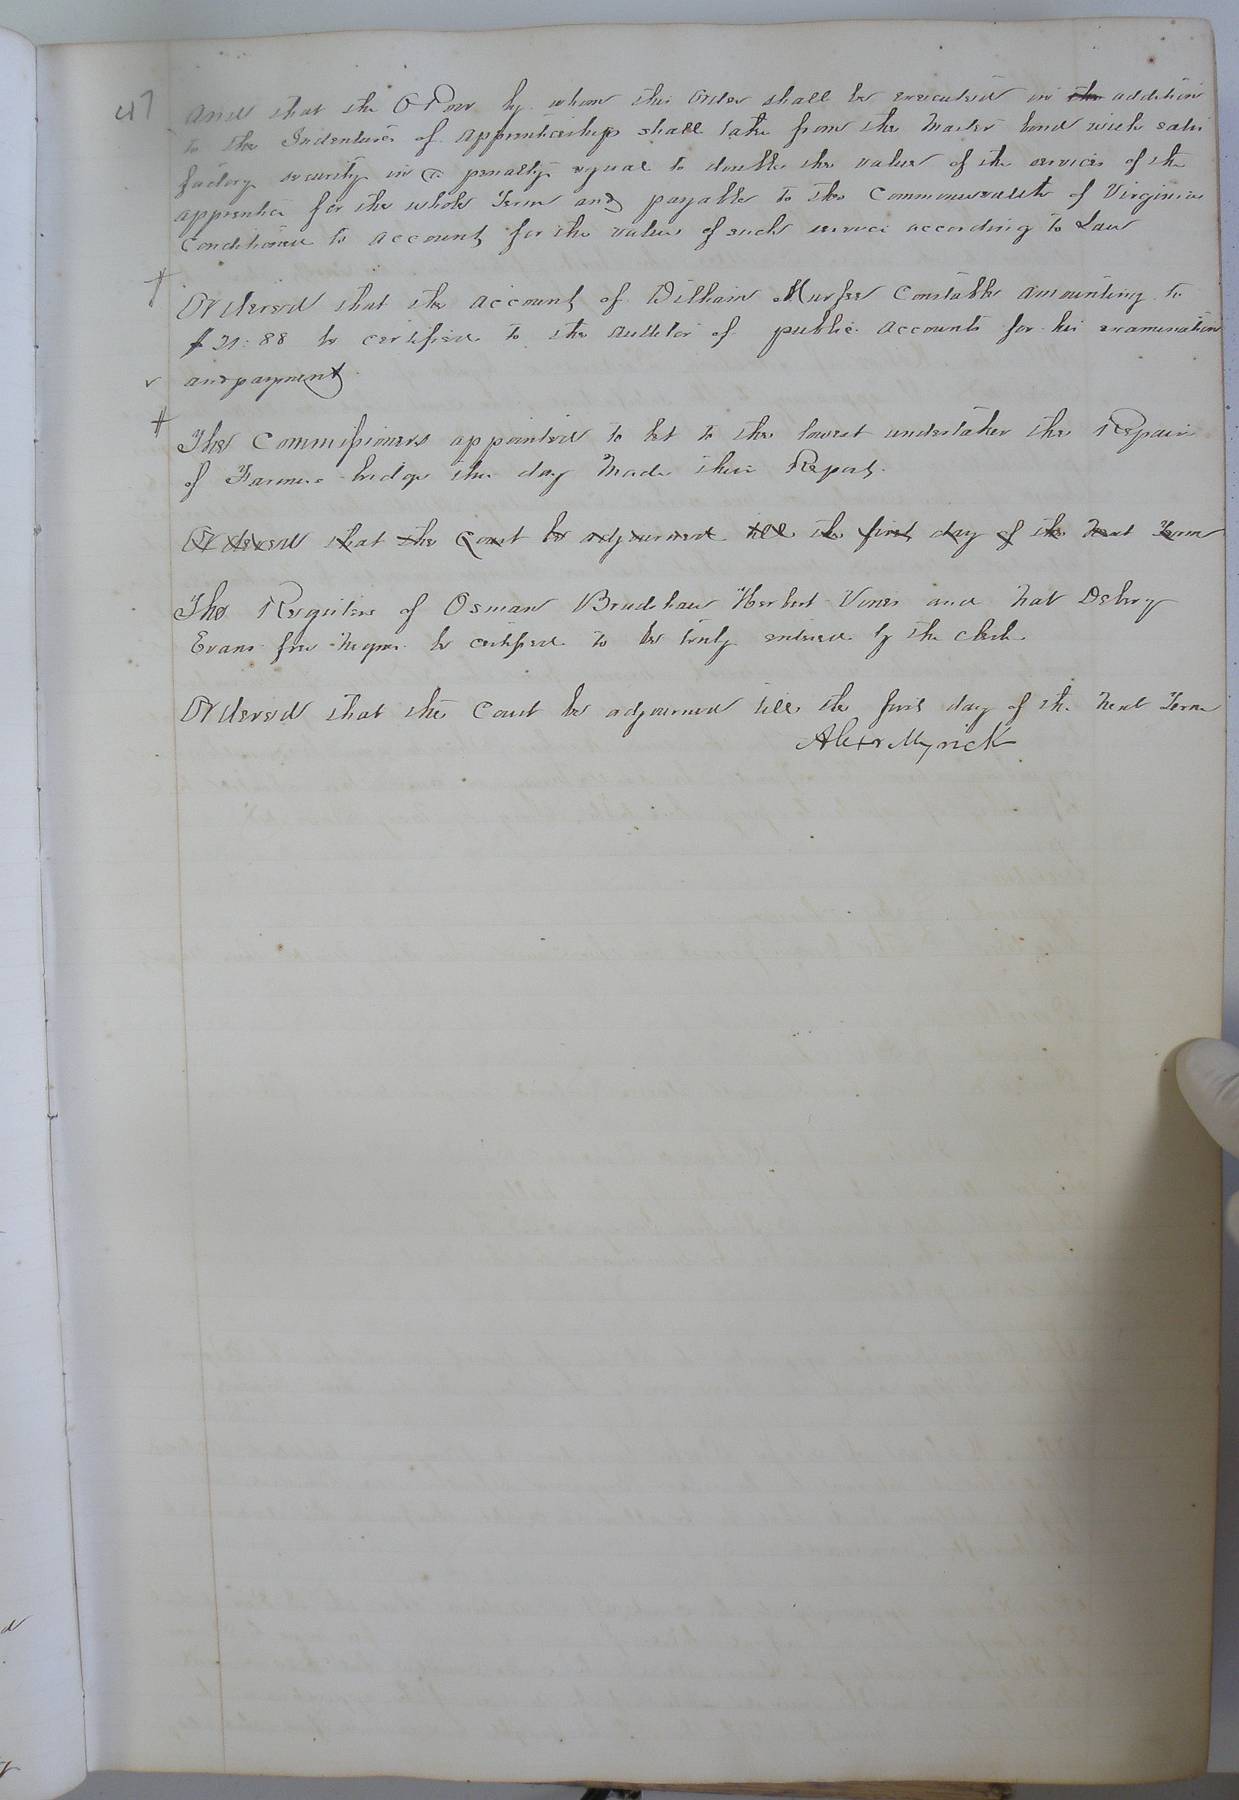 47
And that the O Poor by whom this Order shall be executed in the addition
to the Indentures of apprenticeship shall take from the Master bond with satis
factory security in a penalty equal to double the value of the services of the
apprentice for the whole Term and payable to the Commonwealth of Virginia
Conditioned to account for the value of such service according to Law
Ordered that the account of William Murfee Constable amounting to
$21:88 be certified to the auditor of public accounts for his examination
and payment
The Commissioners appointed to let to the lowest undertaker the Repair
of Farmers bridge this day Made their Report
Ordered that the Court be adjourned till the first day of the Next Term
The Registers of Osman Bradshaw Herbert Vines and Nat Delvry
Evans free Negroes be certified to be truly entered by the clerk
Ordered that the Court be adjourned till the first day of the Next Term
Alexr Myrick